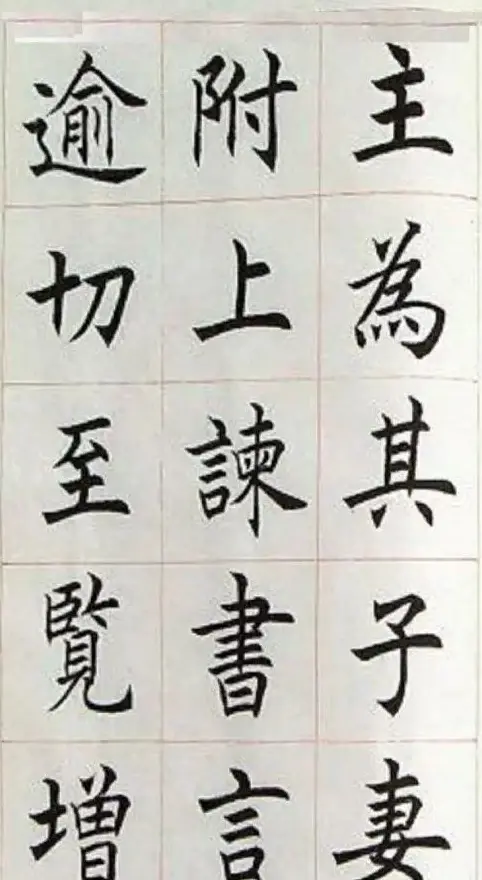 主為其子妻
附上諫書言
逾切至覽增